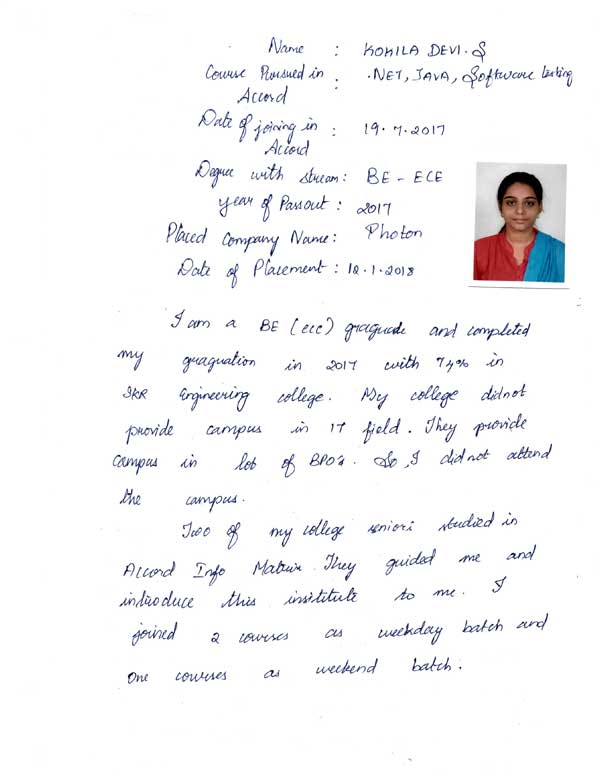 Name : KOKILA DEVI. S
Course Pursued in : .NET, JAVA, Software testing
Accord
Date of joining in : 19.7.2017
Accord
Degree with stream: BE - ECE
year of Passout : 2017
Placed Company Name: Photon
Date of Placement : 12.1.2018
I am a BE (ece) graguade and completed
my graguation in 2017 with 74% in
SKR Engineering college. My college didnot
provide campus in IT field. They provide
campus in lot of BPO's. So, I didnot attend
the campus.
Two of my college seniors studied in
Accord Info Matrix. They guided me and
introduce this institute to me. I
joined 2 courses as weekday batch and
one courses as weekend batch.